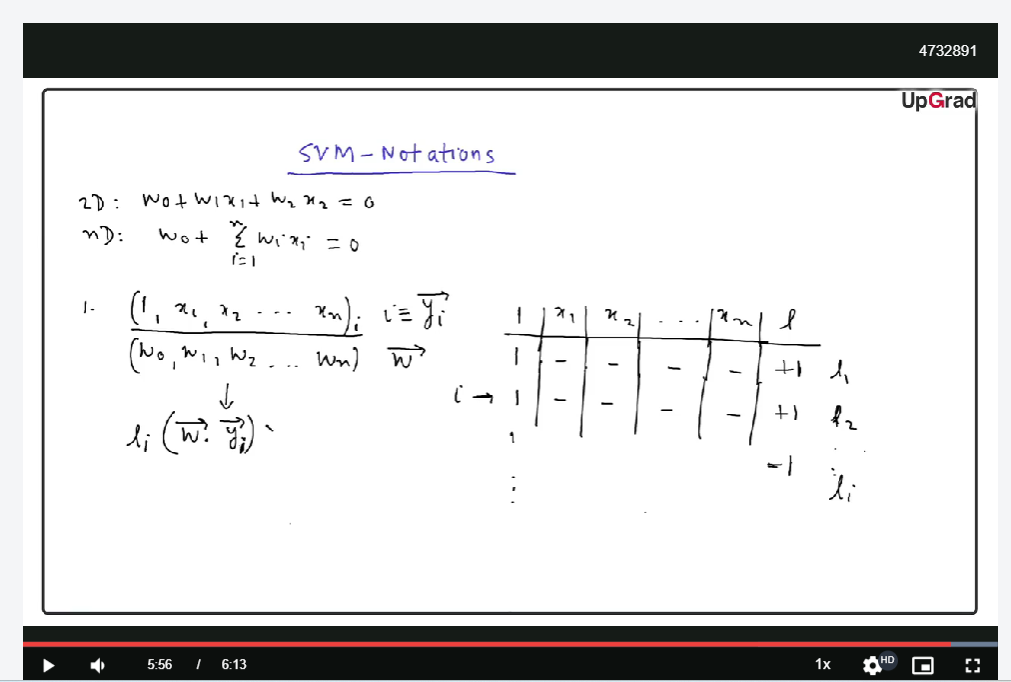 4732891
UpGrad
SVM - Notations
2D: w₀ + w₁x₁ + w₂x₂ = 0
nD: w₀ + Σⁿᵢ₌₁ wᵢxᵢ = 0
1. (1, x₁, x₂ ... xₙ)ᵢ i ≡ y⃗ᵢ
(w₀, w₁, w₂ ... wₙ) w⃗
↓
lᵢ (w⃗ . y⃗ᵢ)
1 | x₁ | x₂ | ... | xₙ | l
1 | - | - | - | - | +1 l₁
i → 1 | - | - | - | - | +1 l₂
-1 lᵢ
5:56 / 6:13 1x HD